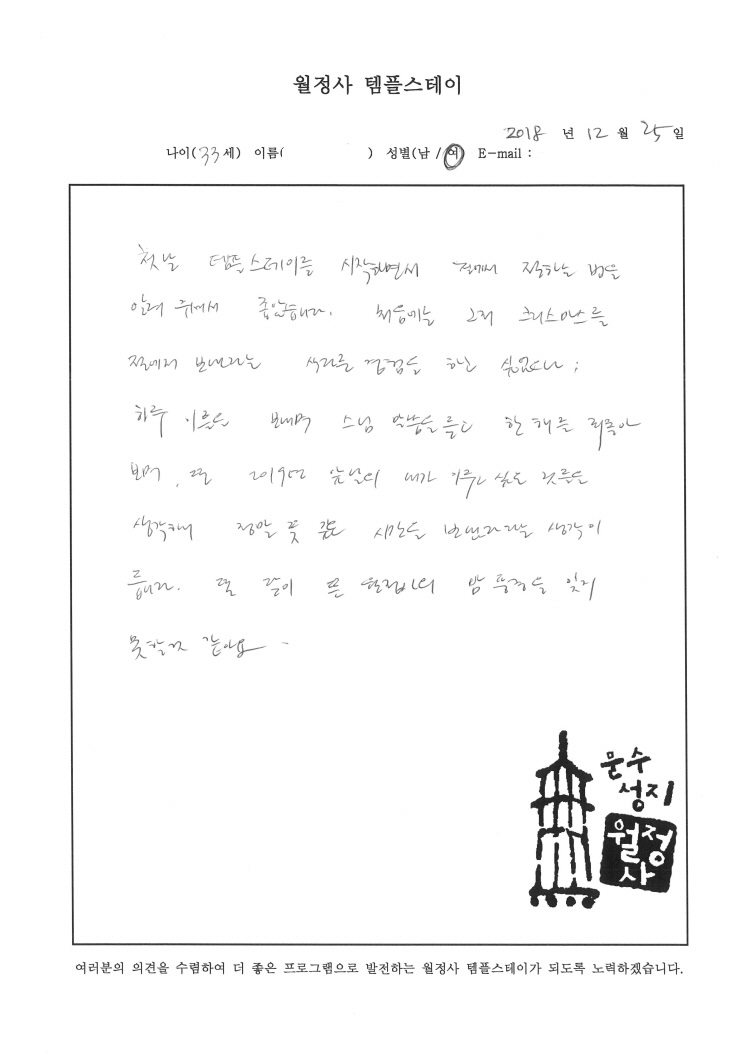 월정사 템플스테이
2018 년 12 월 25 일
나이(33세) 이름( ) 성별(남 / 여) E-mail :
첫날 템플스테이를 시작하면서 절에서 절하는 법을
알려 주셔서 좋았습니다. 처음에는 그저 크리스마스를
절에서 보낸다는 색다른 경험을 하고 싶었으나;
하루 이틀을 보내며 스님 말씀을 듣고 한 해를 되돌아
보며, 또 2019년 앞날에 내가 이루고 싶은 것들을
생각하니 정말 뜻 깊은 시간을 보냈다라는 생각이
듭니다. 또 달이 뜬 월정사의 밤 풍경을 잊지
못할것 같아요.
문수
성지
월정
사
여러분의 의견을 수렴하여 더 좋은 프로그램으로 발전하는 월정사 템플스테이가 되도록 노력하겠습니다.